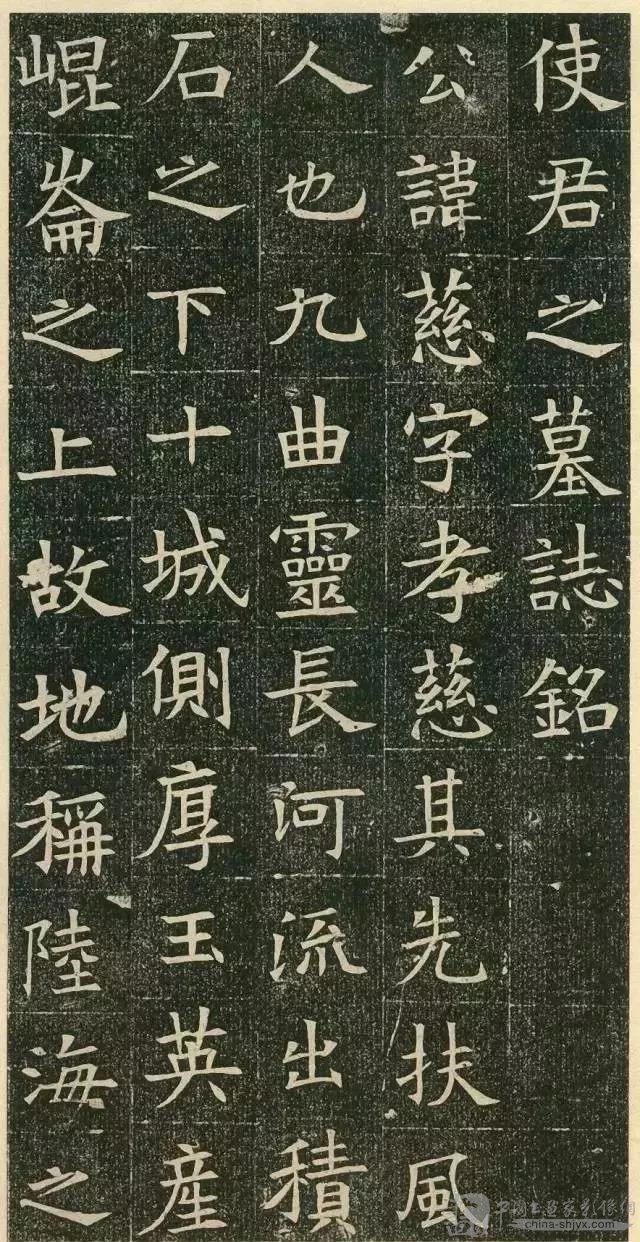 使君之墓誌銘
公諱慈字孝慈其先扶風
人也九曲靈長河流出積
石之下十城側厚玉英産
崐崙之上故地稱陸海之
中国书画家影像网
china-shjyx.com